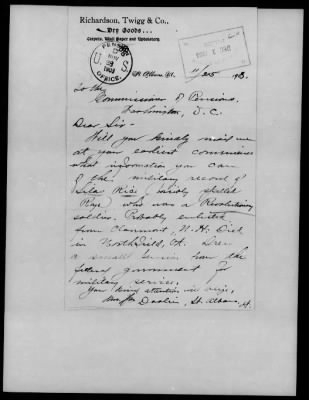 Richardson, Twigg & Co.,
Dry Goods...
Carpets, Wall Paper and Upholstery.
U. S. PENSION OFFICE.
NOV 29 1903
St. Albans, Vt. 11/25 1903.
To the
Commissioner of Pensions,
Washington, D. C.
Dear Sir-
Will you kindly mail me
at your earliest convenience
what information you can
of the military record of
Sila Rice, kindly spelled
who was a Revolutionary
soldier. Probably enlisted
from Claremont, N. H. Died
in Northfield, Vt. Drew
a small pension from the
federal government for
military service.
Your kind attention will
St. Albans, Vt.